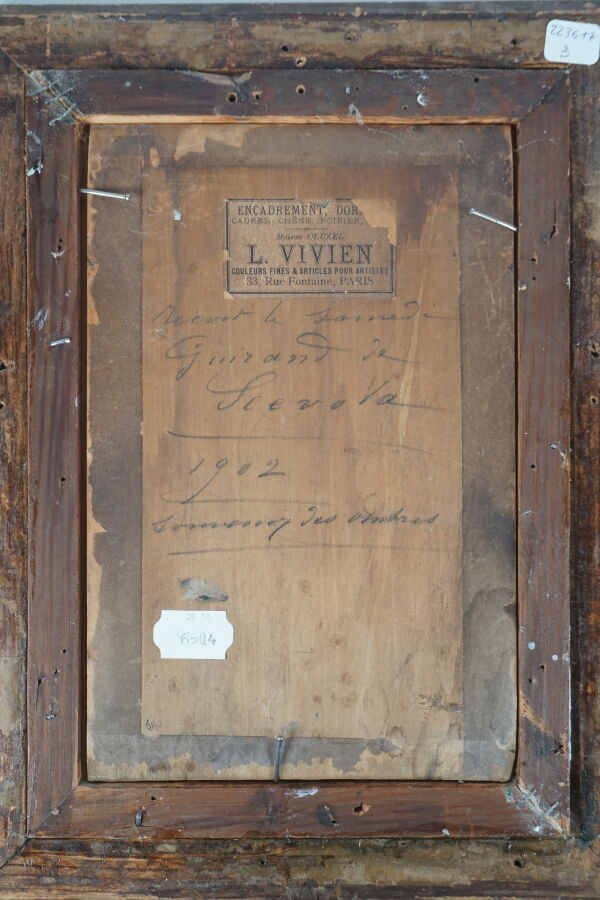 223617
3
ENCADREMENT, DOR
CADRES, CHÊNE, POIRIER,
Maison CLUZEL
L. VIVIEN
COULEURS FINES & ARTICLES POUR ARTISTES
33, Rue Fontaine, PARIS
le samedi
Guirand de
Scevola
1902
des ombres
6504